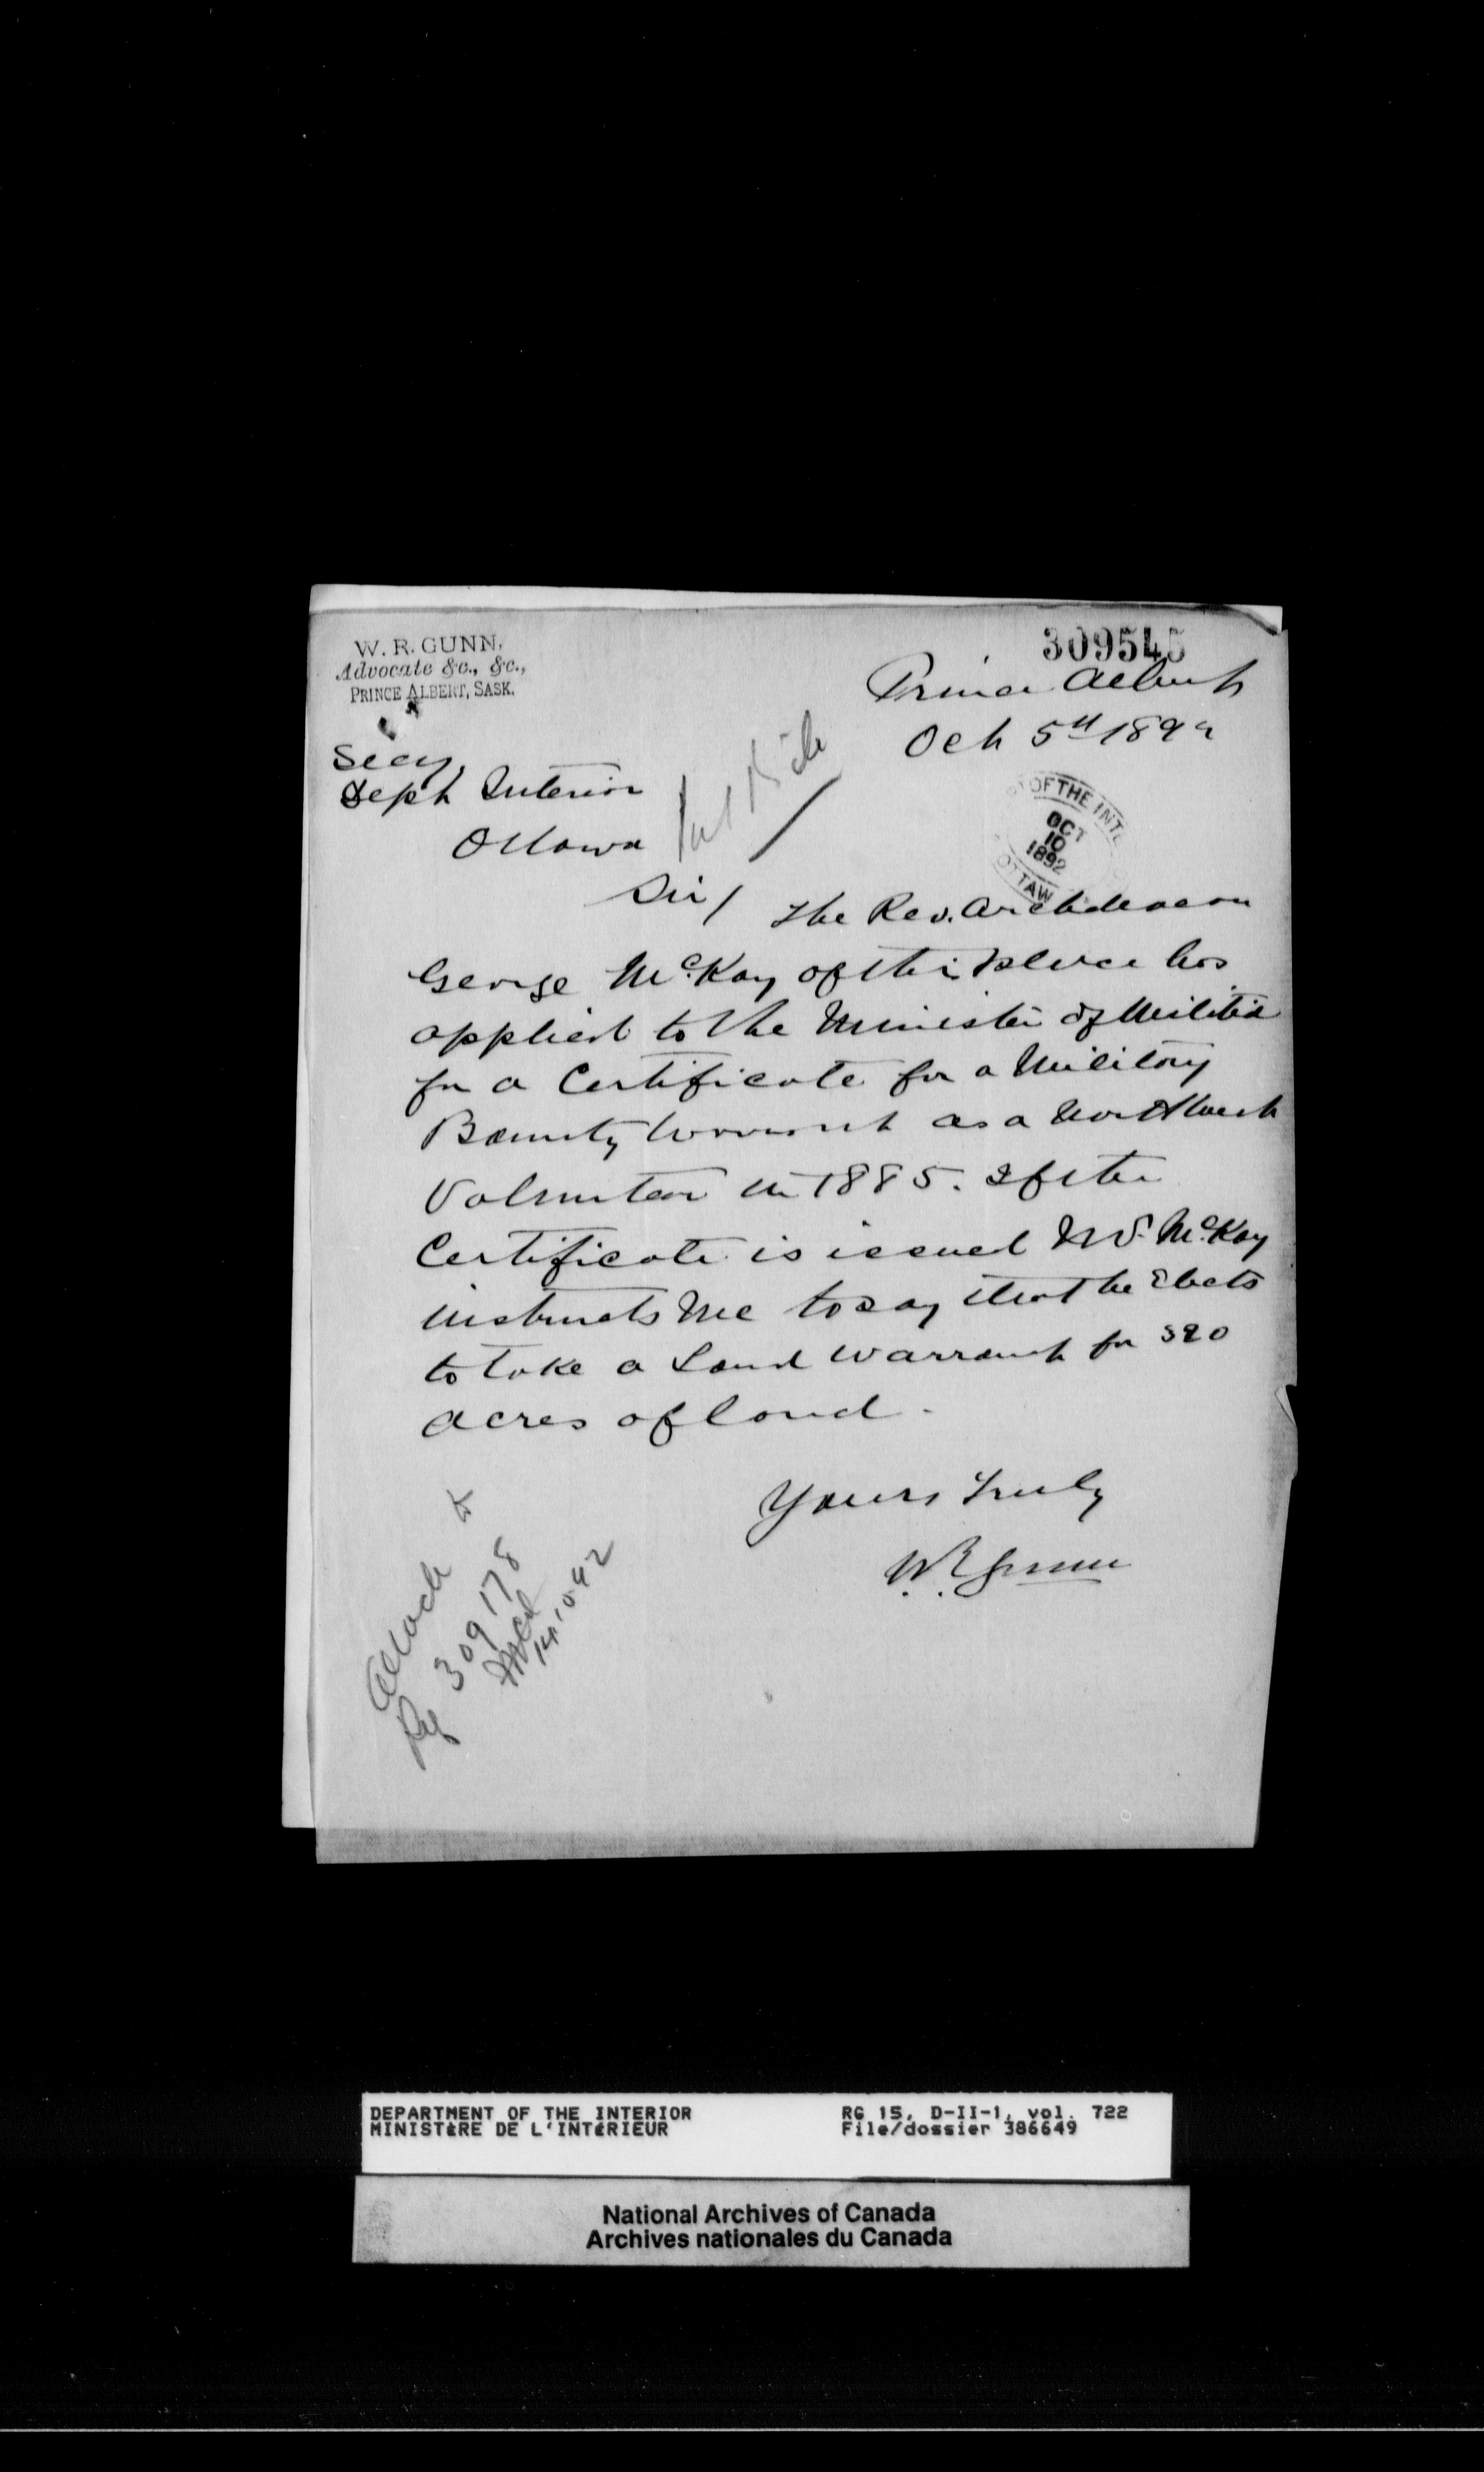 309545
W. R. GUNN,
Advocate &c., &c.,
PRINCE ALBERT, SASK.
Prince Albert
Oct 5th 1892
Secy,
Dept Interior
Ottawa
OF THE INTE
OCT
10
1892
OTTAW
Sir/ The Rev. Archdeacon
George McKay of this place has
applied to the Minister of Militia
for a Certificate for a Military
Bounty Warrant as a Northwest
Volunteer in 1885. If the
Certificate is issued Mr. McKay
instructs me to say that he elects
to take a Land Warrant for 320
acres of land.
Yours truly
W. R. Gunn
Attach to
Ref 309178
14.10.92
DEPARTMENT OF THE INTERIOR
MINISTÈRE DE L'INTÉRIEUR
RG 15, D-II-1, vol. 722
File/dossier 386649
National Archives of Canada
Archives nationales du Canada